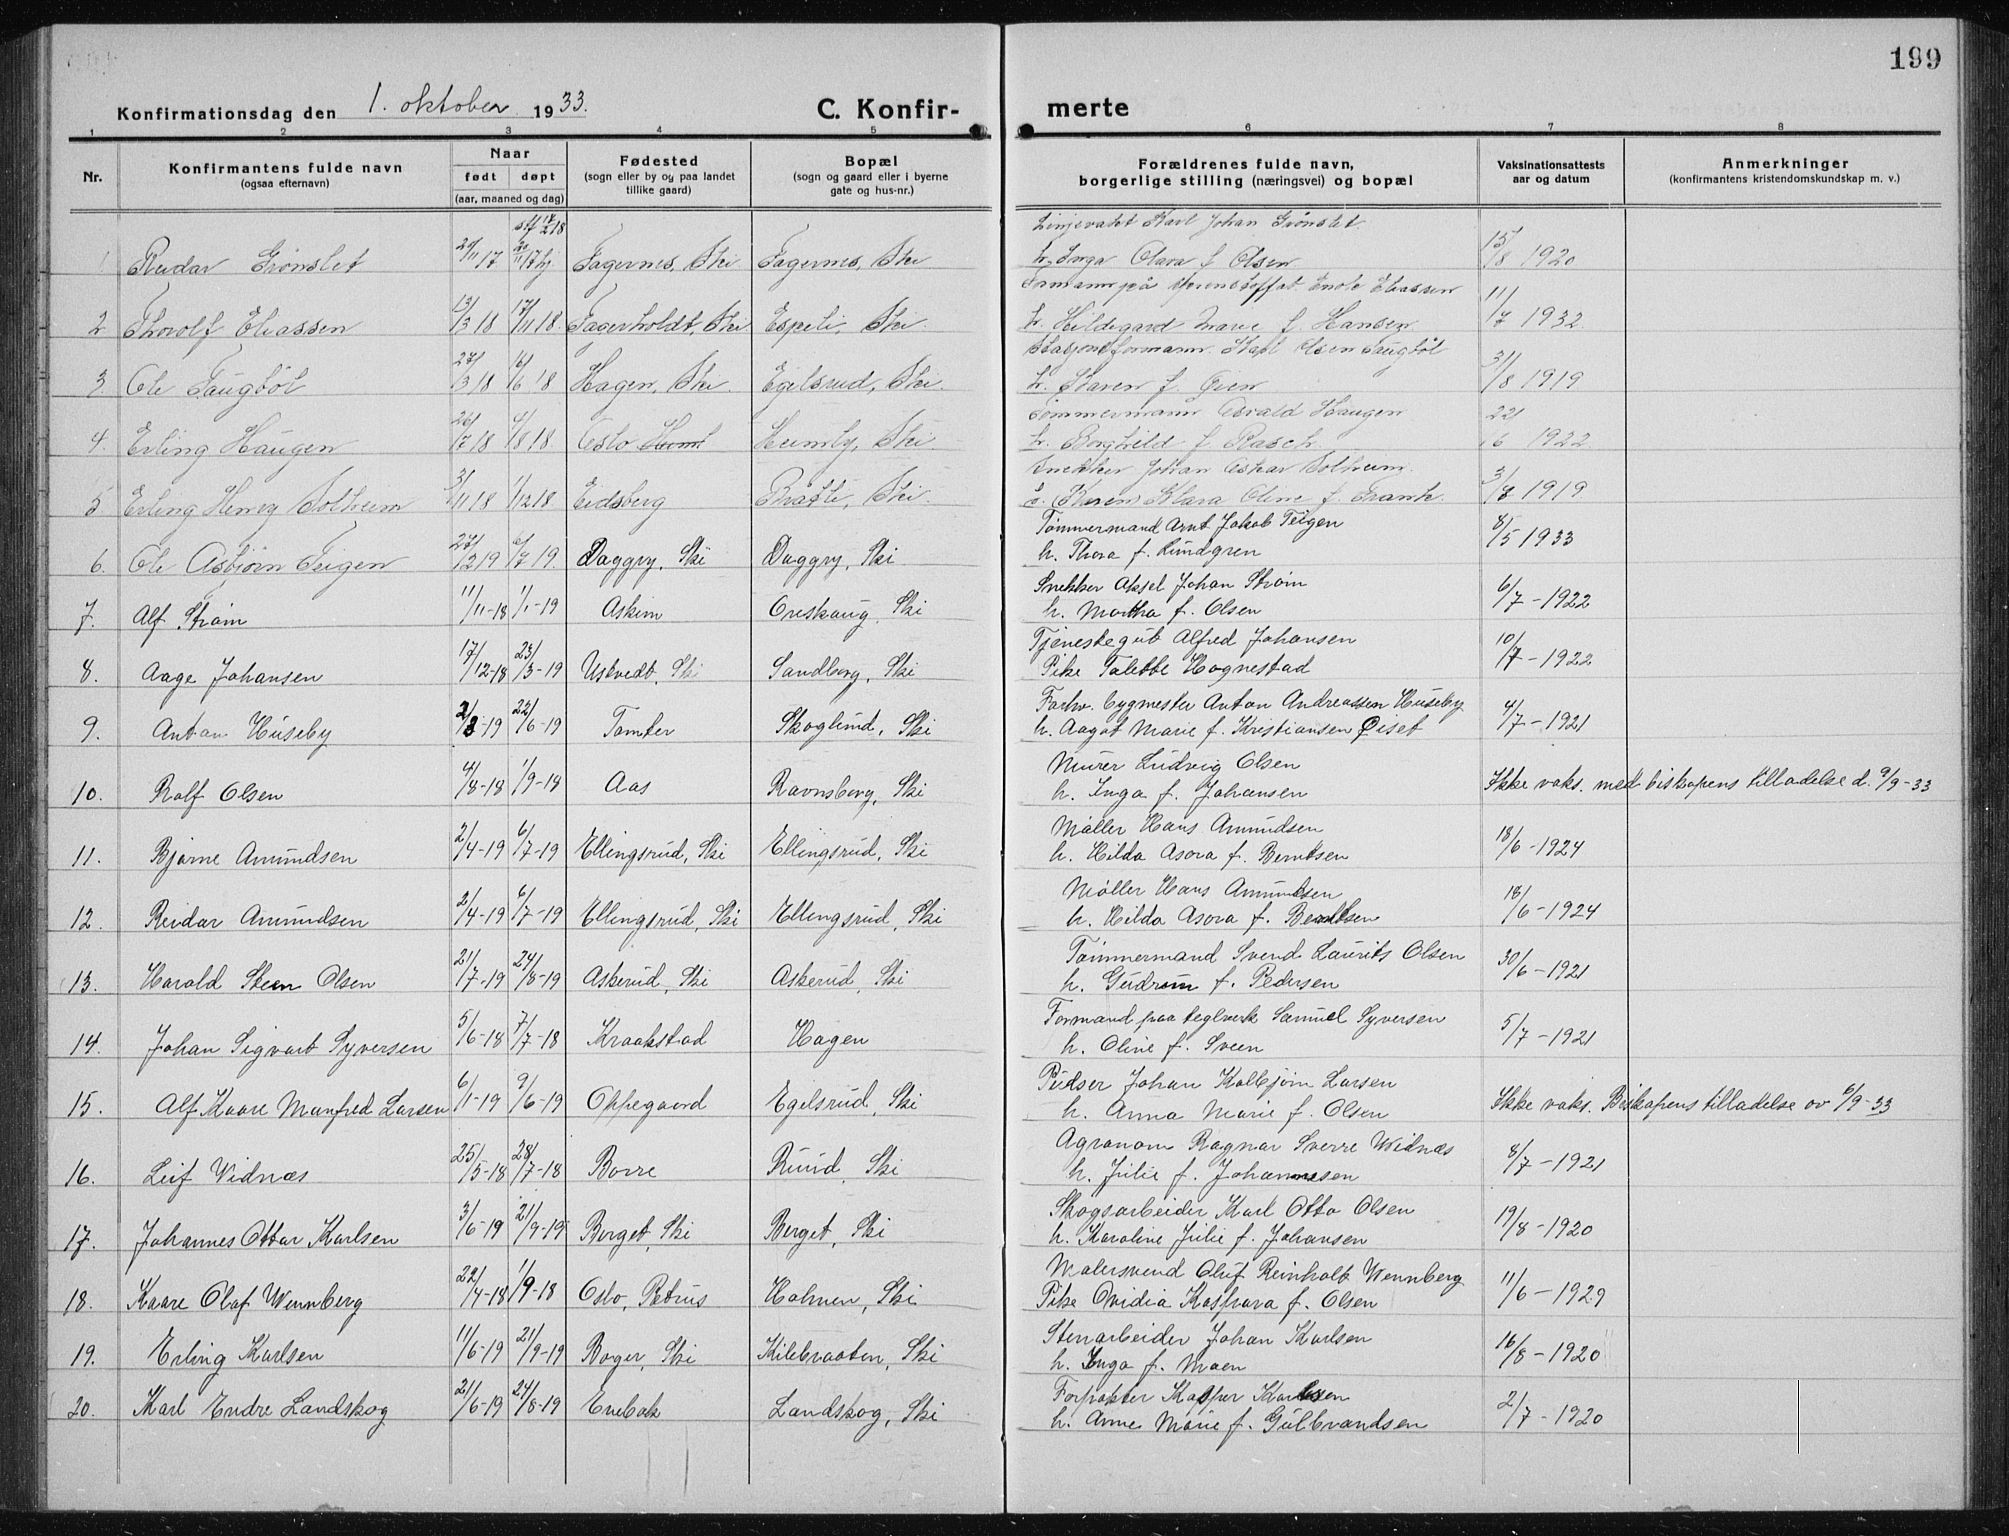 199
Konfirmationsdag den 1. oktober 1933.
C. Konfirmerte
1 2 3 4 5 6 7 8
Nr. Konfirmantens fulde navn (ogsaa efternavn) Naar født døpt (aar, maaned og dag) Fødested (sogn eller by og paa landet tillike gaard) Bopæl (sogn og gaard eller i byerne gate og hus-nr.) Forældrenes fulde navn, borgerlige stilling (næringsvei) og bopæl Vaksinationsattests aar og datum Anmerkninger (konfirmantens kristendomskundskap m. v.)
Karl Johan Grønslet
1 Reidar Grønslet 20/11 17 Fagernes, Ski Fagernes, Ski h. Inga Clara f. Olsen 15/8 1920
Formann på Eliassen
2 Thorolf Eliassen 13/3 18 17/11 18. Fagerholdt, Ski Espeli, Ski. h. Hildegard Marie f. Hansen 11/7 1932
Stasjonsformann Karl Olsen Taugbøl
3. Ole Taugbøl 27/3 18 16/6 18 Hagen, Ski. Egilsrud, Ski. h. Karen f. Øien 31/8 1919
Tømmermann Osvald Haugen
4. Erling Haugen 26/7 18 /8 18. Oslo Heimly, Ski. h. Borghild f. Rasch 22/6 1922
Snekker Johan Oskar Solheim.
5 Erling Henry Solheim 3/11 18 1/12 18 Eidsberg Bråtli, Ski. h. Karen Klara Oline f. Frank. 3/8 1919
Tømmermand Arnt Jakob Teigen
6. Ole Asbjørn Teigen 27/2 19 6/7 19. Daggry, Ski Daggry, Ski h. Thora f. Lundgren 8/5 1933
Snekker Aksel Johan Strøm
7. Alf Strøm 11/11-18 1/1-19 Askim Oreskaug, Ski h. Martha f. Olsen 6/7-1922
Tjenestegut Alfred Johansen
8. Aage Johansen 17/12-18 23/3-19 Ustvedt, Ski Sandberg, Ski Pike Talette Hognestad 10/7-1922
Forhv. bygmester Anton Andreassen Huseby
9. Anton Huseby 2/3-19 22/6-19 Tomter Skoglund, Ski h. Aagot Marie f. Kristiansen Øiset 4/7-1921
Murer Ludvig Olsen
10. Rolf Olsen 4/8-18 1/9-18 Aas Ravnsborg, Ski h. Inga f. Johansen Ikke vaks. med biskopens tilladelse d. 9/9-33
Møller Hans Amundsen
11. Bjarne Amundsen 2/4-19 6/7-19 Ellingsrud, Ski Ellingsrud, Ski h. Hilda Asora f. Berntsen 18/6-1924
Møller Hans Amundsen
12. Reidar Amundsen 2/4-19 6/7-19 Ellingsrud, Ski Ellingsrud, Ski h. Hilda Asora f. Berntsen 18/6-1924
Tømmermand Svend Laurits Olsen
13. Harald Steen Olsen 21/7-19 24/8-19 Askerud, Ski Askerud, Ski h. Gudrun f. Pedersen 30/6-1921
Formand paa teglverk Samuel Syversen
14. Johan Sigvart Syversen 5/6-18 7/7-18 Kraakstad Hagen h. Oline f. Sveen 5/7-1921
Pudser Johan Kolbjørn Larsen
15. Alf Kaare Manfred Larsen 6/1-19 9/6-19 Oppegaard Egilsrud, Ski h. Anna Marie f. Olsen Ikke vaks. Biskopens tilladelse av 6/9-33
Agronom Ragnar Sverre Widnæs
16. Leif Widnæs 25/5-18 28/7-18 Borre Ruud, Ski h. Julie f. Johannesen 8/7-1921
Skogsarbeider Karl Otto Olsen
17. Johannes Ottar Karlsen 3/6-19 21/9-19 Berget, Ski Berget, Ski h. Karoline Julie f. Johansen 19/8-1920
Malersvend Oluf Reinholt Wennberg
18. Kaare Olaf Wennberg 22/4-18 1/9-18 Oslo, Petrus Holmen, Ski Pike Ovidia Kaspara f. Olsen 11/6-1929
Stenarbeider Johan Karlsen
19. Erling Karlsen 11/6-19 21/9-19 Boger, Ski Kilebraaten, Ski h. Inga f. Moen 16/8-1920
Forpakter Kasper Karlsen
20. Karl Endre Landskog 21/6-19 24/8-19 Enebak Landskog, Ski h. Anne Marie f. Gulbrandsen 2/7-1920